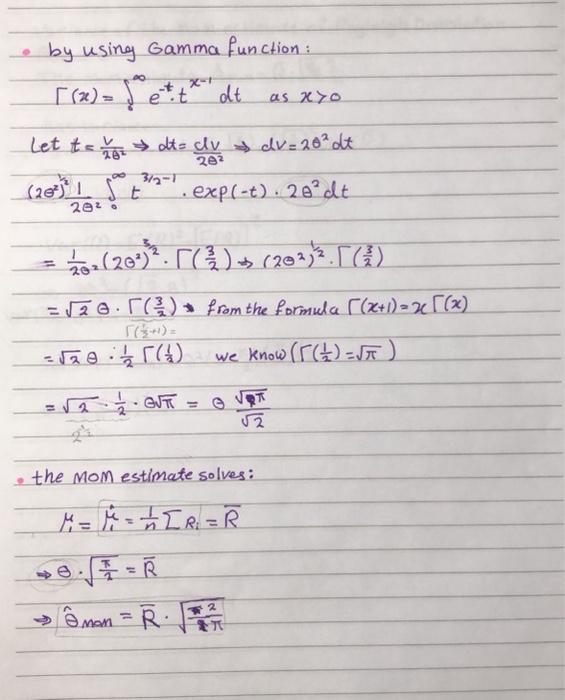 • by using Gamma function:
Γ(x) = ∫₀^∞ e^-t . t^x-1 dt as x>0
Let t = v/2θ² ⇒ dt = dv/2θ² ⇒ dv = 2θ² dt
(2θ²)^1/2 1/2θ² ∫₀^∞ t^3/2-1 . exp(-t) . 2θ² dt
= 1/2θ² . (2θ²)^3/2 . Γ(3/2) ⇒ (2θ²)^1/2 . Γ(3/2)
= √2 θ . Γ(3/2) → from the formula Γ(x+1) = x Γ(x)
Γ(1/2+1) =
= √2 θ . 1/2 Γ(1/2) we know (Γ(1/2) = √π)
= √2 . 1/2 . θ√π = θ √π/√2
2^1/2
• the MOM estimate solves:
μ₁ = μ̂₁ = 1/n Σ Rᵢ = R̄
⇒ θ . √π/2 = R̄
⇒ θ̂ mom = R̄ . √2/π